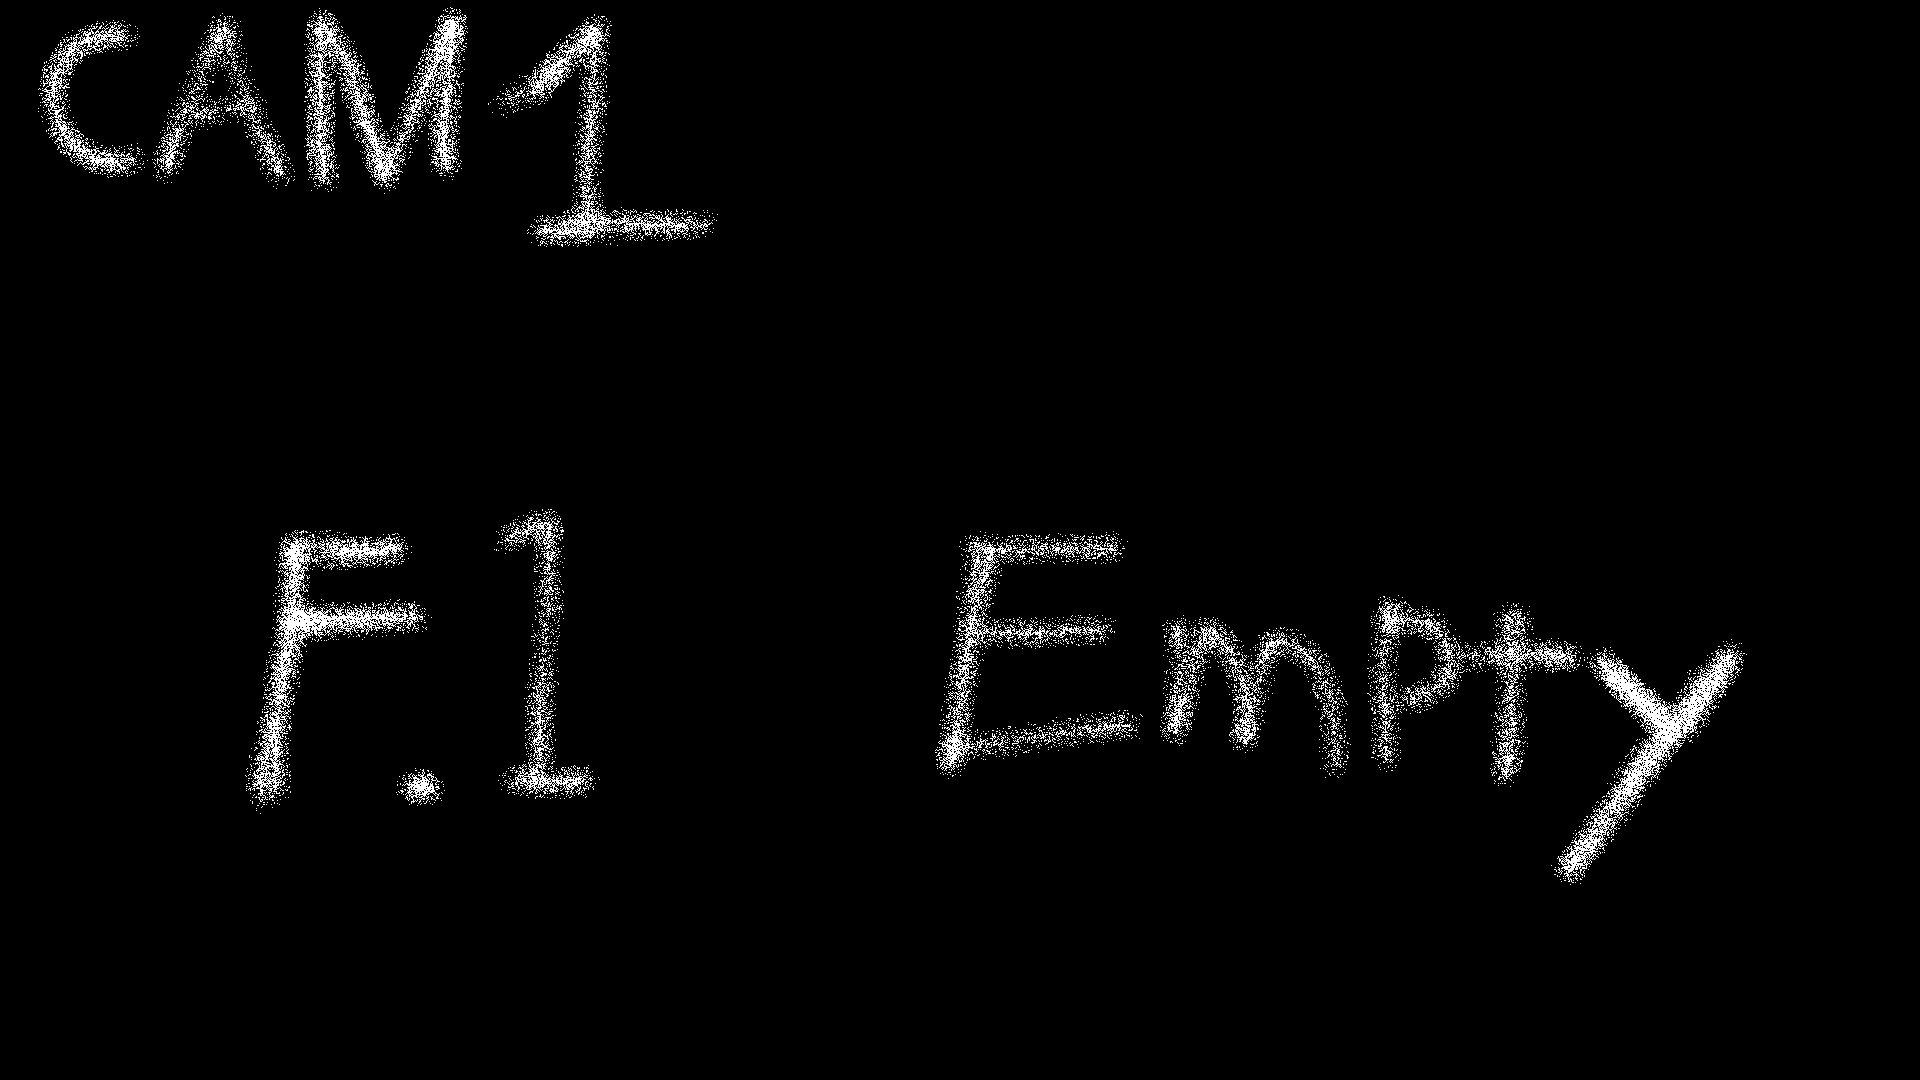 CAM 1
F.1 Empty